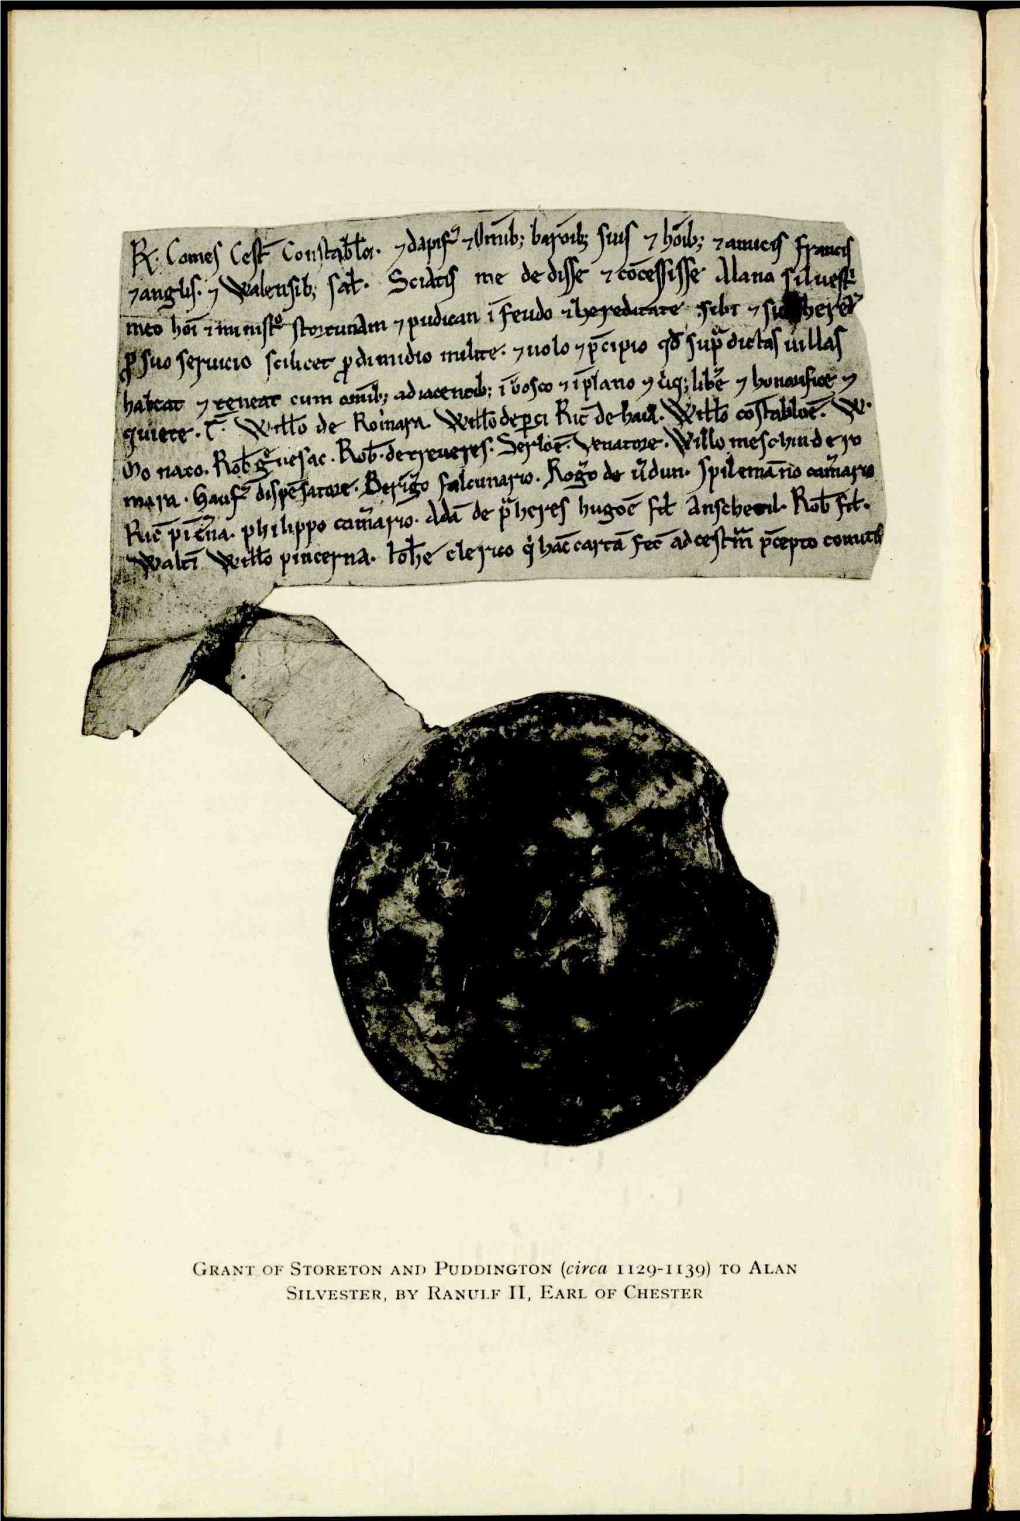 R. Comes Cest̄ Constabłoi. ⁊ dapif̄ ⁊ Omīb; baroīb; suis ⁊ hoīb; ⁊ amicis francis
⁊ anglis. ⁊ Walensib; sał. Sciatis me dedisse ⁊ cōcessisse Alano siluest̄
meo hoī ⁊ ministº stortunam ⁊ pudican ī feudo ⁊ hereditate sibi ⁊ heret̄
ꝑ suo seruicio scilicet ꝑ dimidio milite. ⁊ uolo ⁊ p̄cipio qđ sup̄ dictas uillas
habeat ⁊ teneat cum omīb; adiacentib; ī bosco ⁊ ī plano ⁊ libe ⁊ honorifice ⁊
quiete. T. Wiłło de Romara. Wiłło de ꝑci Ric̄ de Wiłło cōstabloē. W.
Mo naco. Rob̄ g Rob̄. de treueres. Serloē. Venatore. Willo meschin de ro
mara. dispēsatore. Berigo falcunario. Rogo de dun. Spilemanno camario
Ric̄ pīcna. philippo camario. Adā de pheres hugoē fil̄ Anschetil. Rob̄ fil̄.
Walti Wiłło pincerna. Iohe clerico q̄ hāc cartā fec̄ ad cestm p̄cepto comitis
Grant of Storeton and Puddington (circa 1129-1139) to Alan
Silvester, by Ranulf II, Earl of Chester